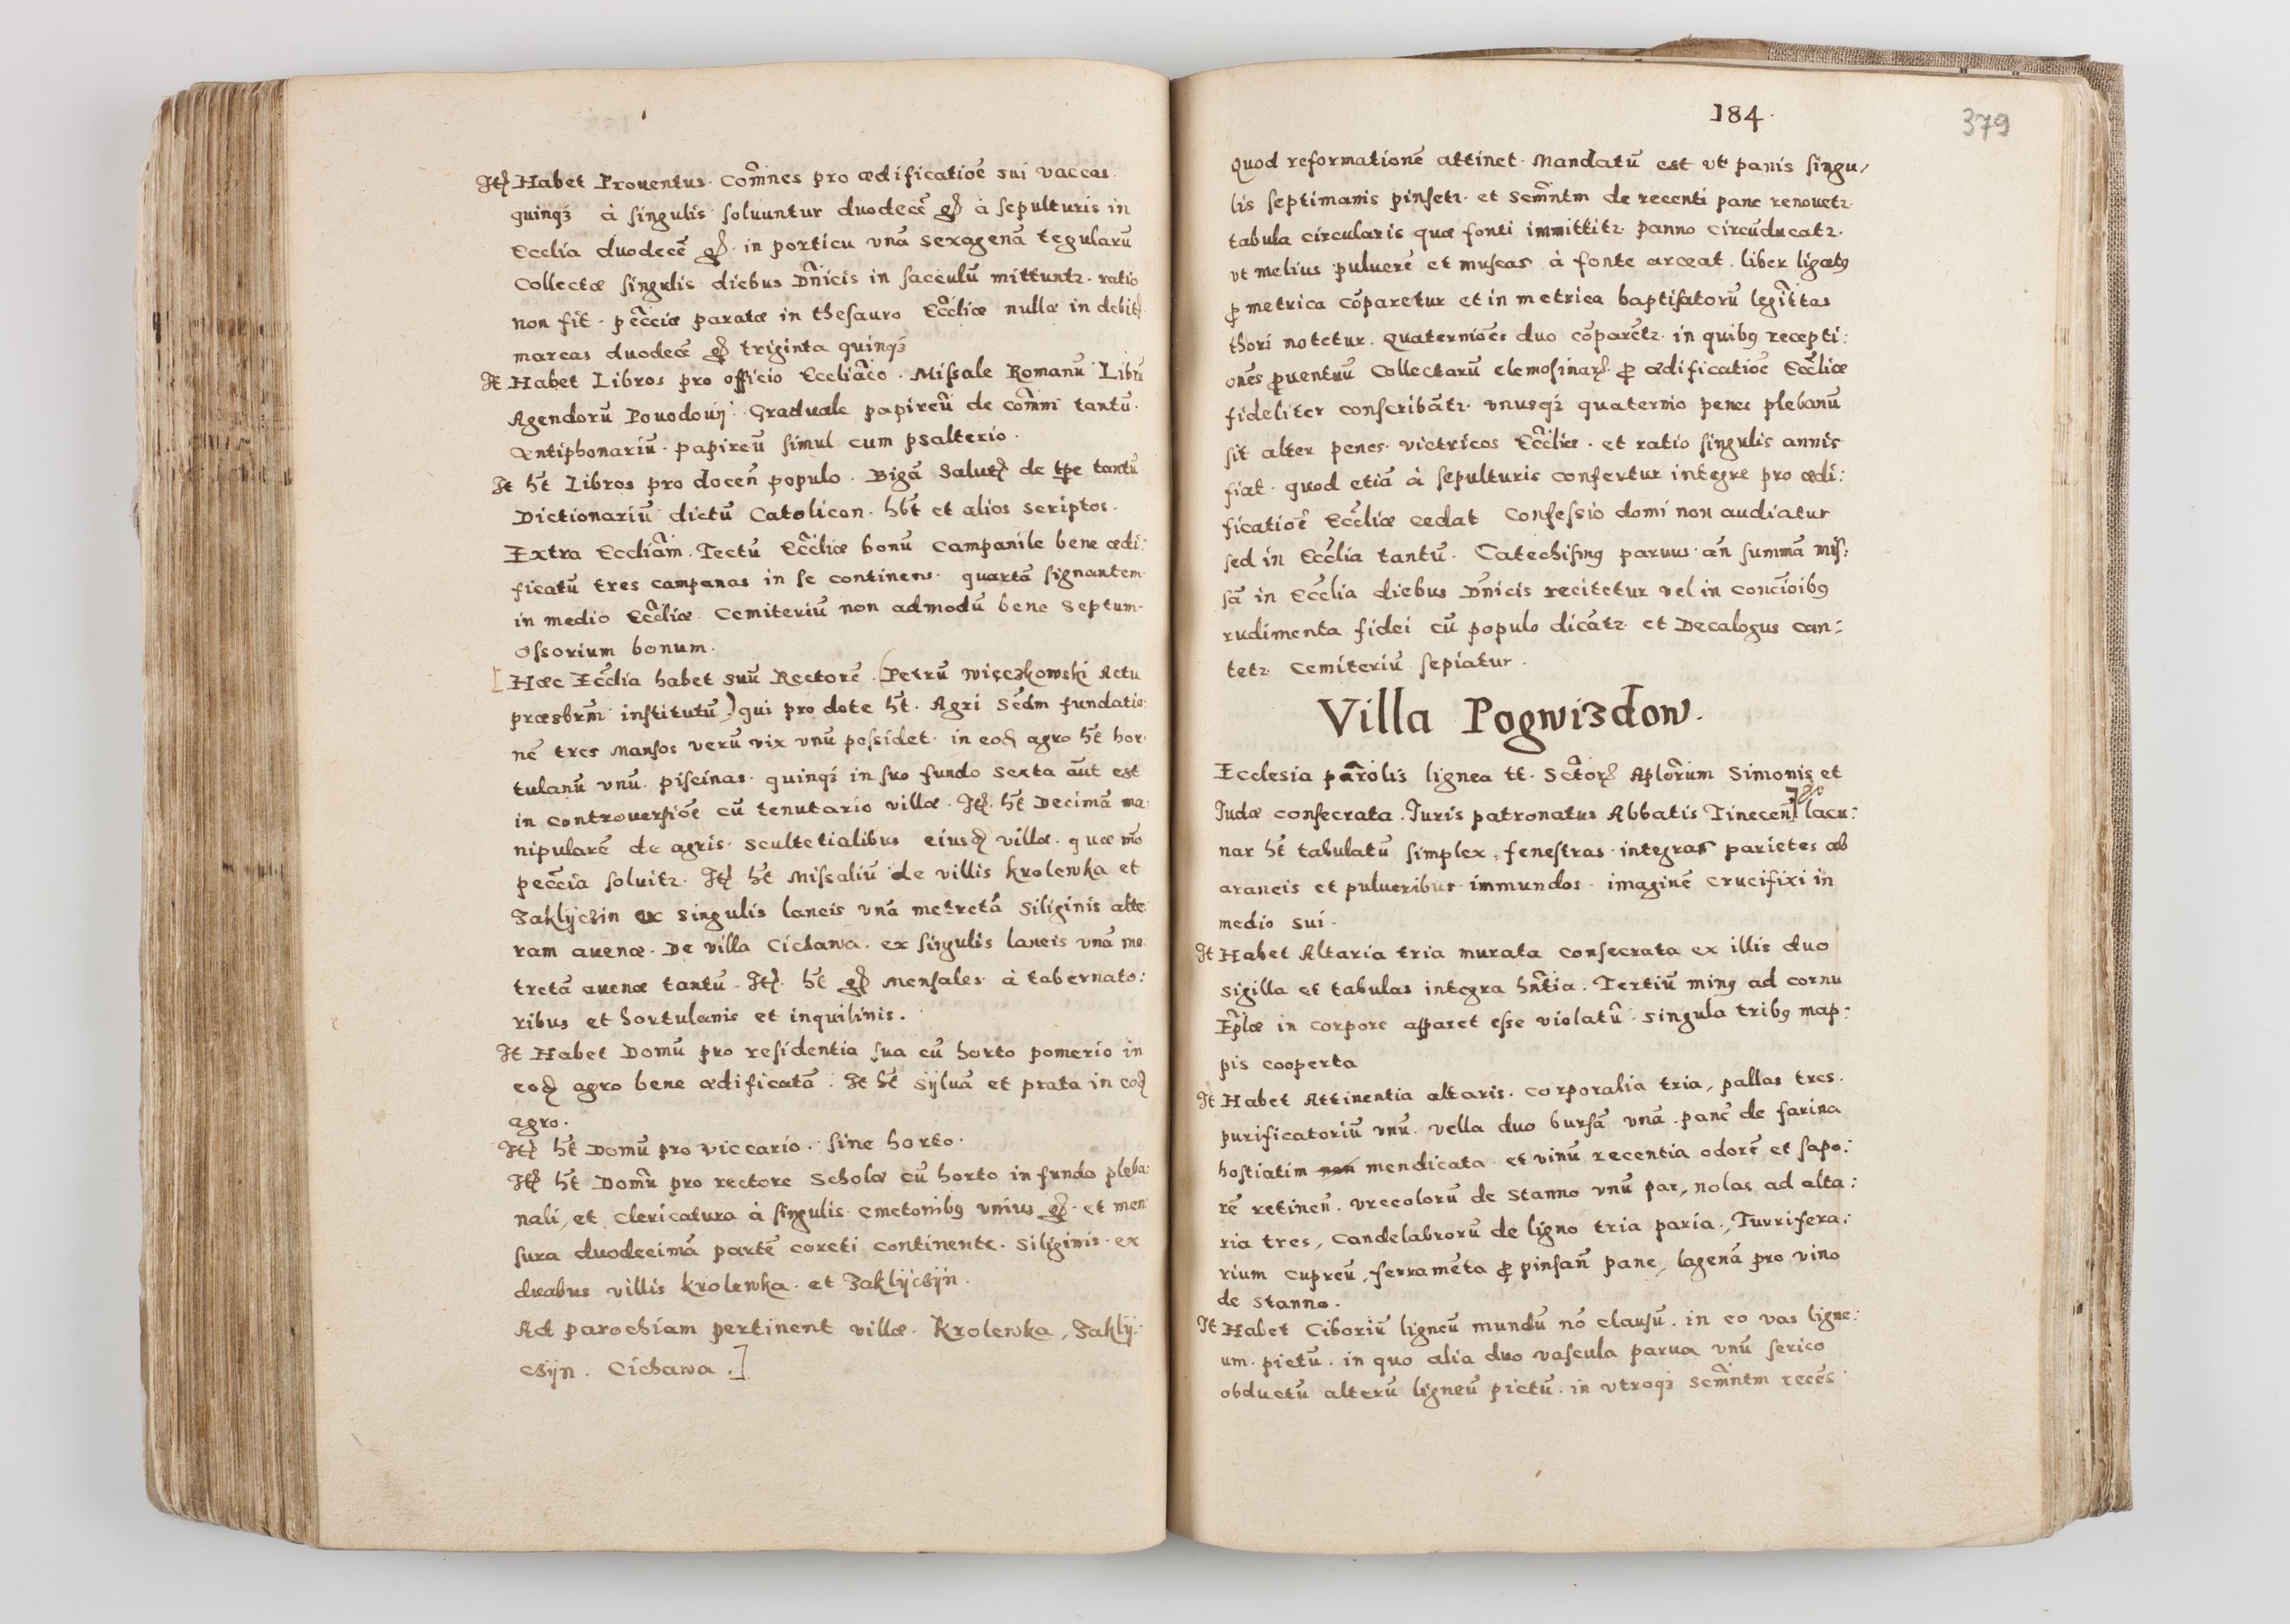 Itē Habet Prouentus. Com̃nes pro ædificatiōe sui vaccas
quinqȝ à singulis soluuntur duodecē gꝛ à sepulturis in
Ecclia duodecē gꝛ. in porticu vnā sexagenā tegularū
Collectæ singulis diebus Dn̄icis in sacculū mittuntꝛ. ratio
non fit. pecc̃iæ paratæ in thesauro Eccl̃iæ nullæ in debitꝭ
marcas duodecē gꝛ triginta quinqȝ
It Habet Libros pro officio Eccliãco. Missale Romanū Librū
Agendorū Powodowij. Graduale papireū de com̃ni tantū.
Antiphonariū. papireū simul cum psalterio.
It ħt Libros pro docen̄ populo. Bigā Salutꝭ de tꝑe tantū
Dictionariū dictū Catolicon. hb̄t et alios scriptos.
Extra Eccliam̃. Tectū Eccl̃iæ bonū Campanile bene ædi:
ficatū tres campanas in se continens. quartā signantem
in medio Eccl̃iæ. Cemiteriū non admodū bene septum.
Ossorium bonum.
[Hæc Eccl̄ia habet suū Rectorē. (Petrū Więczkowski Actu
præsbrm̄ institutū) qui pro dote ħt. Agri Sēdm fundatio:
nē tres Mansos verū vix vnū possidet. in eod agro ħt hor
tulanū vnū. piscinas. quinqȝ in suo fundo sexta aūt est
in controuersiōe cū tenutario villæ. Itē. ħt Decimā ma:
nipularē de agris. scultetialibus eiusd villæ. quæ mō
pecc̃ia soluitꝛ. Itē ħt Missaliū de villis Krolewka et
Zaklyczin ex singulis laneis vnā metretā siliginis alte:
ram auenæ. De villa Cichawa. ex singulis laneis vnā me
tretā auenæ tantū. Itē. ħt gꝛ Mensales à tabernato:
ribus et hortulanis et inquilinis.
It Habet Domū pro residentia sua cū horto pomerio in
eod agro bene ædificatā. It ħt Sÿluā et prata in eod
agro.
Itē ħt Domū pro viccario. sine horto.
Itē ħt Domū pro rectore Scholæ cū horto in fundo pleba:
nali, et clericatura à singulis cmetonibꝰ vnius gꝛ. et men
sura duodecimā partē coreti continente. siliginis. ex
duabus villis Krolewka. et Zaklÿczÿn.
Ad parochiam pertinent villæ. Krolewka, Zaklÿ:
czÿn. Cichawa.]
184.
379
Quod reformationē attinet. Mandatū est vt panis singu,
lis septimanis pinsetꝛ. et Scm̃ntm de recenti pane renouetꝛ.
tabula circularis quæ fonti immittitꝛ. panno circūducatꝛ.
vt melius puluerē et muscas à fonte arceat. liber ligatꝰ
ꝓ metrica cōparetur et in metrica baptisatorū legit̃tas
thori notetur. Quaterniōes duo cōparētꝛ. in quibꝰ recepti:
onēs ꝓuentuū Collectarū elemosinarꝭ ꝓ ædificatiōe Eccl̃iæ
fideliter conscribātꝛ. vnusqȝ quaternio penes plebanū
sit alter penes. victricos Eccl̃iæ. et ratio singulis annis
fiat. quod etiā à sepulturis confertur integre pro ædi:
ficatiōe Eccl̄iæ cedat Confessio domi non audiatur
sed in Eccl̄ia tantū. Catechismꝰ paruus. an̄ summā mis:
sā in Eccl̄ia diebus Dn̄icis recitetur vel in conc̄ioibꝰ
rudimenta fidei cū populo dicātꝛ. et Decalogus can:
tetꝛ. Cemiteriū sepiatur.
Villa Pogwiȝdow.
Ecclesia parolis lignea tt. Sctõrꝭ Aplõrum Simonis et
Judæ consecrata. Juris patronatus Abbatis Tinecen̄] lacu:
nar ħt tabulatū simplex, fenestras. integras parietes ab
araneis et pulueribus immundos. imaginē crucifixi in
medio sui.
It Habet Altaria tria murata consecrata ex illis duo
sigilla et tabulas integra hn̄tia. Tertiū minꝰ ad cornu
Ep̃læ in corpore apparet esse violatū. singula tribꝰ map:
pis cooperta
It Habet Attinentia altaris. Corporalia tria, pallas tres.
purificatoriū vnū. vella duo bursā vnā. panē de farina
hostiatim non mendicata et vinū recentia odorē et sapo:
rē retinen̄. vrceolorū de stanno vnū par, nolas ad alta:
ria tres, Candelabrorū de ligno tria paria., Turrifera:
rium cupreū, ferramēta ꝓ pinsan̄ pane, lagenā pro vino
de stanno.
It Habet Ciboriū ligneū mundū nō clausū. in eo vas ligne:
um. pictū. in quo alia duo vascula parua vnū serico
obductū alterū ligneū pictū. in vtroqȝ Scm̃ntm recēs